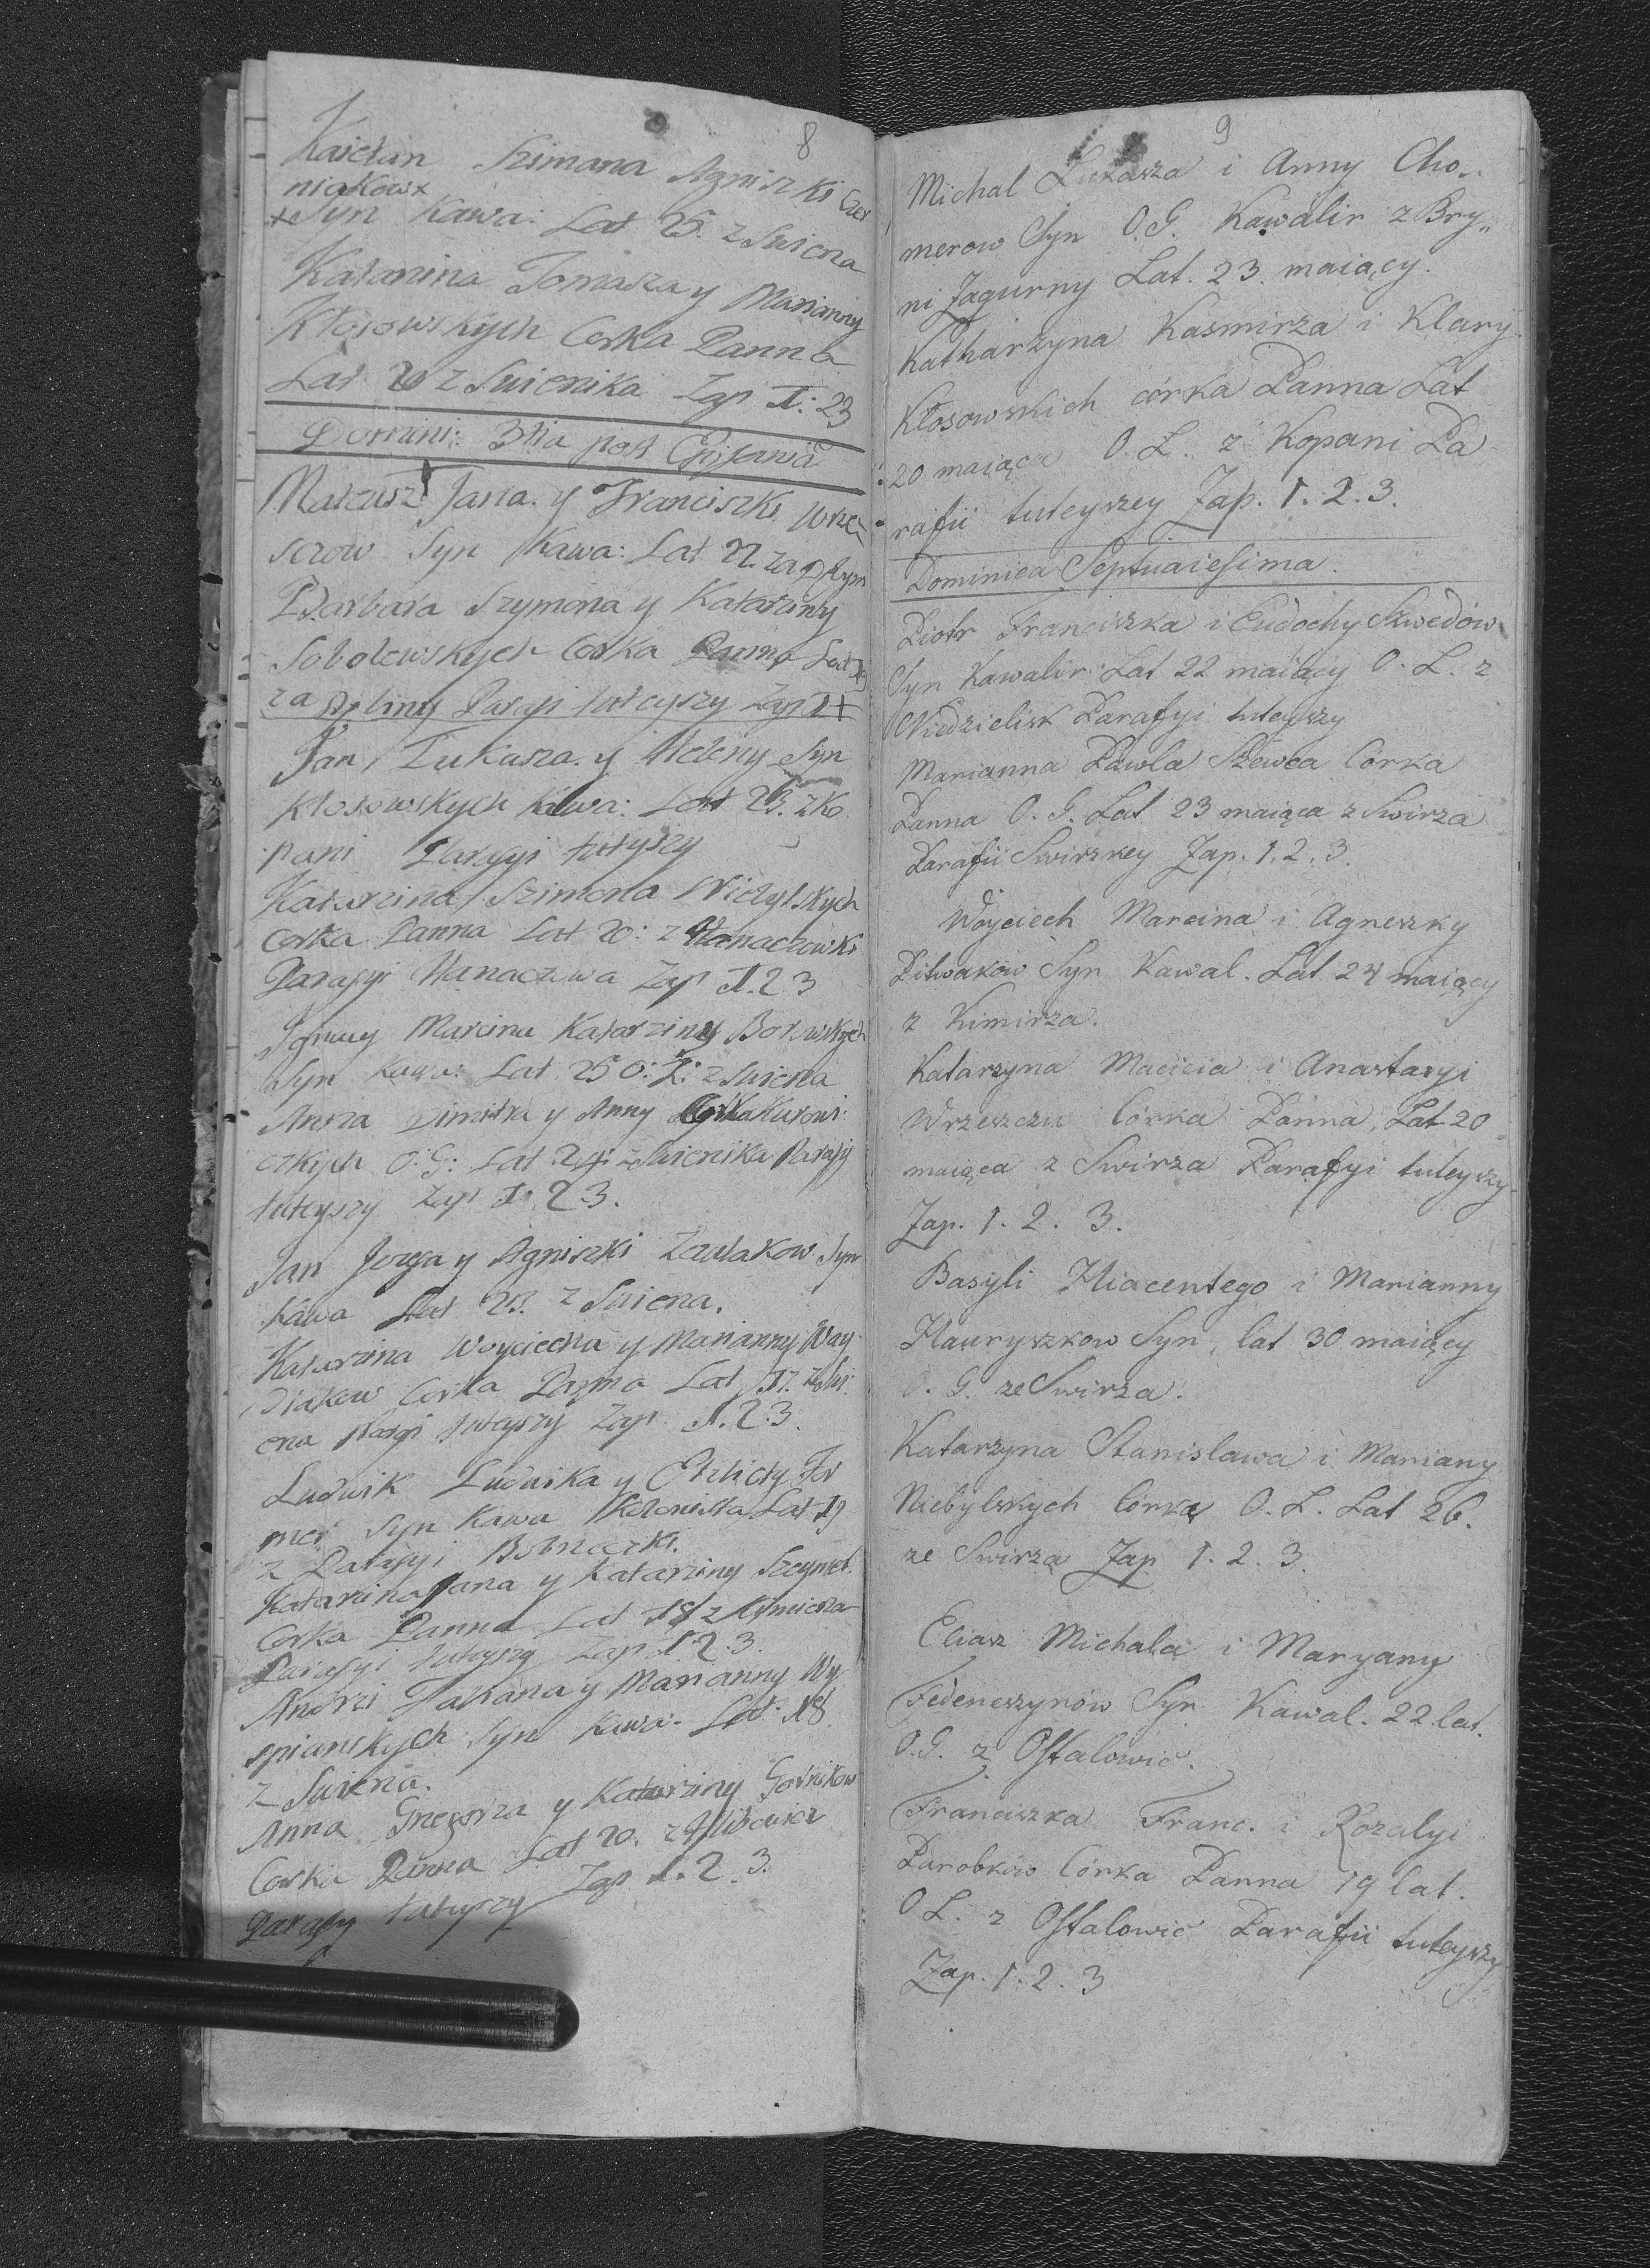 8
Kaietan Szimana Agniszki Czer
niakow+
+Syn Kawa: Lat 25. z Swirza
Katarzina Tomasza y Marianny
Kłosowskych Corka Panna
Lat 20 z Swirzika Zap I: 23
Domini: 3tia post Epifania
Mateusz Jana. y Franciszki Wrze
sczow Syn Kawa: Lat 22. za
Barbara Szymona y Katarziny
Sobolewskych Corka Panna Lat
za Parafi tuteyszy Zap
Jan, Łukasza. y Heleny Syn
Kłosowskych Kawa: Lat 23. z Ko
pani Parafyi tutyszy
Katarzina, Szimona Niebylskych
Corka Panna Lat 20: z Hanaczowki
Parafyi Hanaczowa Zap 1. 2 3
Ignacy Marcina Katarziny Borowskych
Syn Kawa: Lat 25 O: Ł: z Swirza
Anna Dimitra y Anny Corka Kurowi
czkych O: G: Lat 24: z Swirzika Parafy
tuteyszy Zap 1. 2 3.
Jan Jozefa y Agniszki Zawlakow Syn
Kawa Lat 23. z Swirza.
Katarzina Woyciecha y Marianny Way
diakow Corka Panna Lat 17. z Swi
rza Parafi tuteyszy Zap 1. 2. 3.
Ludwik Ludwika y Elzbiety
mer Syn Kawa Kolonista Lat 19
z Parafyi
Katarzina Jana y Katarziny
Corka Panna Lat 18 z Kimierza
Parafyi tuteyszy Zap 1 2. 3.
Andrzi y Marianny Wy
spianskych Syn Kawa: Lat: 18
z Swirza.
Anna Grzegorza y Katarziny Gornikow
Corka Panna Lat 20. z Hlibowicz
Parafy tutyszy Zap 1. 2. 3.
9
Michal Łukasza i Anny Cho„
merow Syn O.G. Kawalir z Bry„
ni Zagurny Lat. 23. maiący.
Katharzyna Kasmirza i Klary
Kłosowskich córka Panna Lat
20 maiąca O. Ł. z Kopani Pa
rafii tuteyszey Zap. 1. 2. 3.
Dominica Septuaiesima.
Piotr Franciszka i Eudochy Szwedów
Syn Kawalir Lat 22 maiący O. Ł. z
Niedzielisk Parafyi tuteyszy
Marianna Pawla Szewca Córka
Panna O. G. Lat 23 maiąca z Swirza
Parafii Swirzkey Zap. 1. 2. 3.
Woyciech Marcina i Agneszky
Litwaków Syn Kawal. Lat 24 maiący
z Kimirza.
Katarzyna Macieia i Anastazyi
Wrzeszczu Córka Panna, Lat 20
maiąca z Swirza Parafyi tuteyszy
Zap. 1. 2. 3.
Basyli Hiacentego i Marianny
Hauryszkow Syn, lat 30 maiący
O. G. ze Swirza.
Katarzyna Stanislawa i Mariany
Niebylskych Córka O. Ł. Lat 26.
ze Swirza Zap 1. 2. 3.
Eliasz Michala i Maryany
Fedeneszynów Syn Kawal. 22 lat.
O.G. z Ostalowic.
Franciszka Franc. i Rozalyi
Parobków Córka Panna 19 lat.
O Ł. z Ostalowic Parafii tuteyszy
Zap. 1. 2. 3